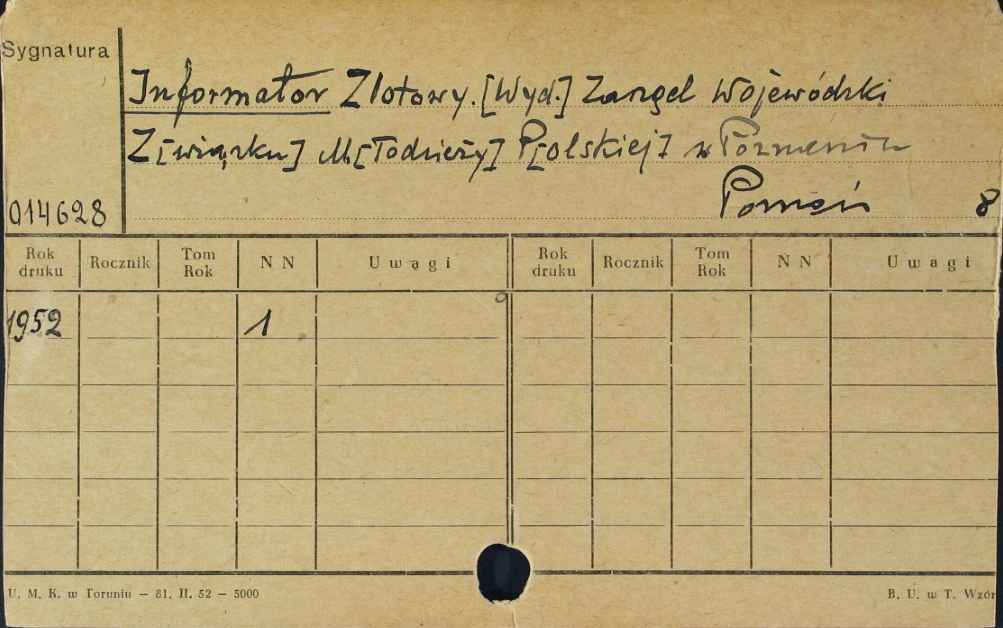 Sygnatura
Informator Zlotowy. [Wyd.] Zarząd Wojewódzki
Z[wiązku] M[łodzieży] P[olskiej] w Poznaniu
Poznań 8
014628
Rok druku Rocznik Tom Rok N N Uwagi Rok druku Rocznik Tom Rok N N Uwagi
1952 1
U. M. K. w Toruniu — 81. II. 52 — 5000 B. U. w T. Wzór